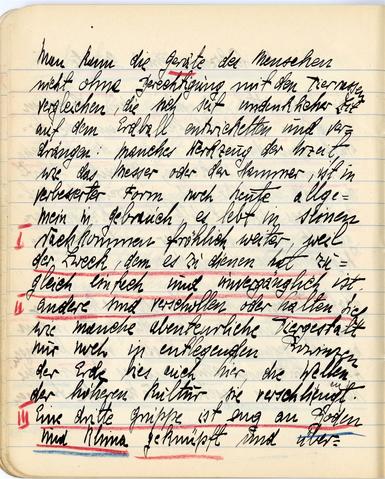 Man kann die Geräte des Menschen
nicht ohne Berechtigung mit den Tierrassen
vergleichen, die sich seit undenklicher Zeit
auf dem Erdball entwickelten und ver-
drängen: manches Werkzeug der Urzeit,
wie das Messer oder der Hammer, ist in
verbesserter Form noch heute allge-
mein in gebrauch, es lebt in seinen
I Nachkommen fröhlich weiter, weil
der Zweck, dem es zu dienen hat zu-
gleich einfach und unvergänglich ist.
II andere sind verschollen oder halten sich
wie manche abenteuerliche Tiergestalt
nur noch in entlegenden
der Erde bis auch hier die Wellen
der höheren Kultur sie verschlingt.
III Eine dritte gruppe ist eng an Boden
und Klima geknüpft und über-